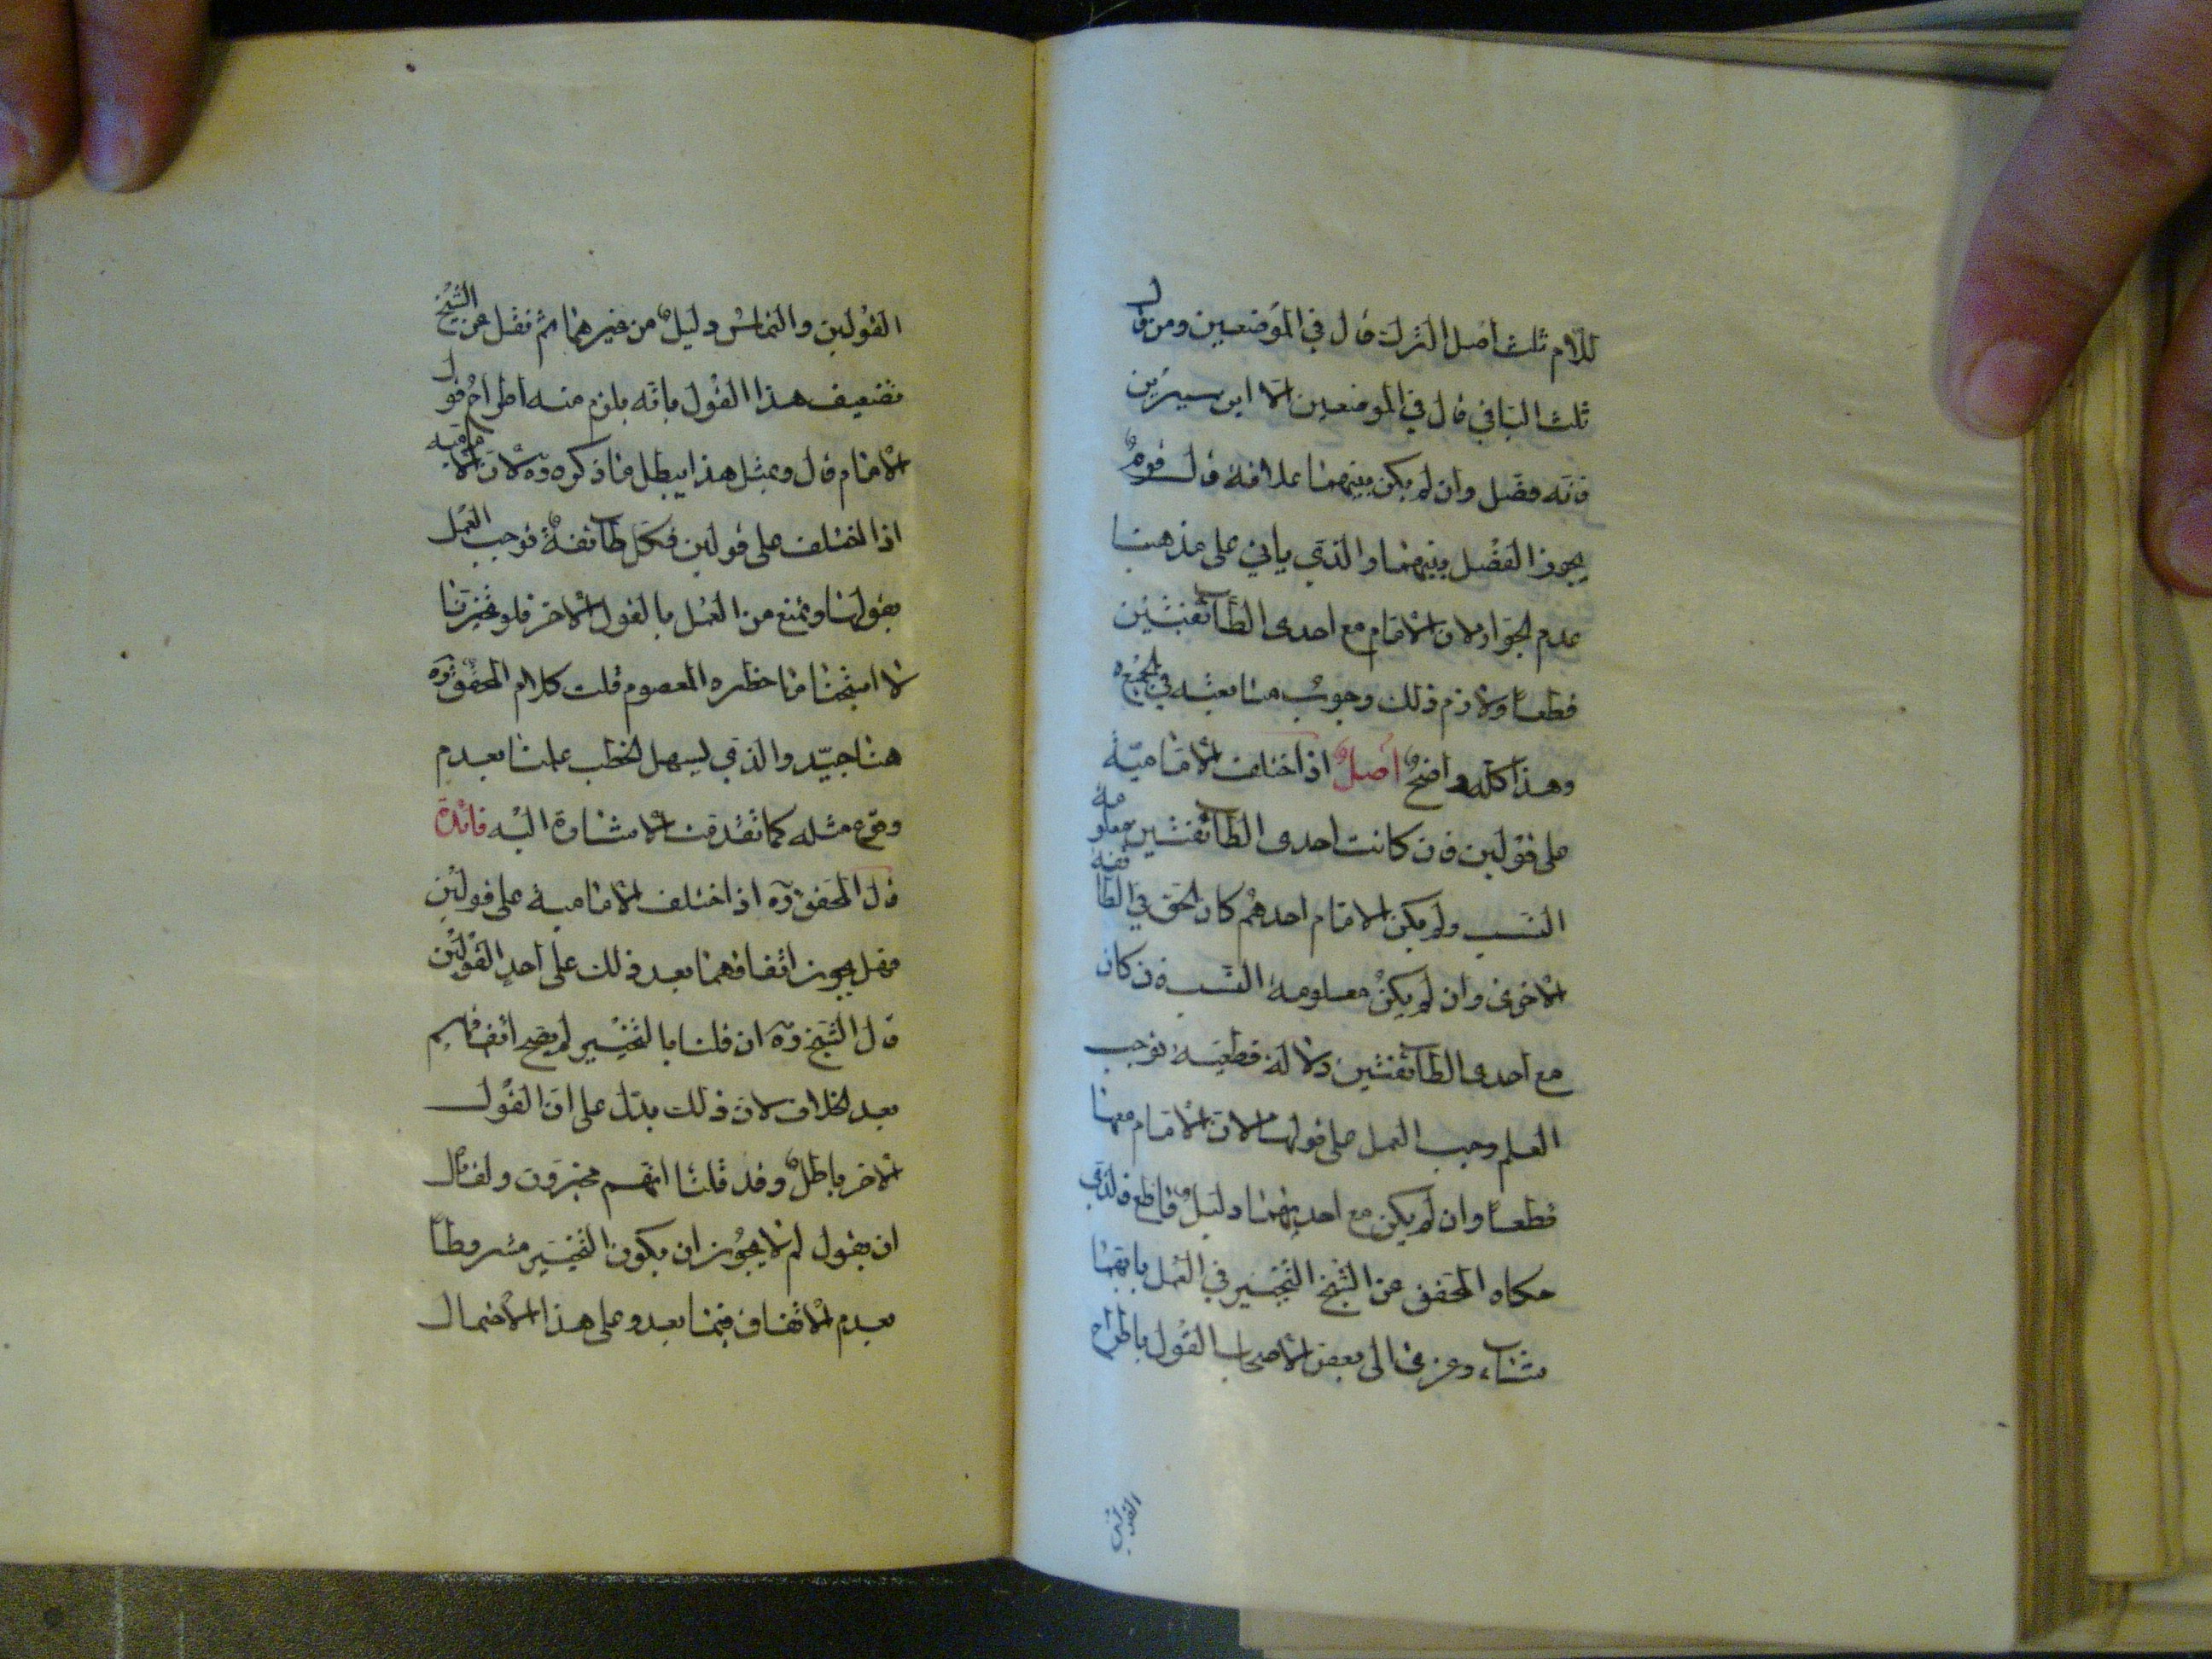 للام ثلث اصل التركة قال في الموضعين ومن قال
ثلث الباقي قال في الموضعين الا ابن سيرين
فانه فصّل وان لم يكن بينهما علاقة قال قومٌ
يجوز الفصل بينهما والذي ياتي على مذهبنا
عدم الجواز لان الامام مع احدى الطائفتين
قطعاً ولازم ذلك وجوب متابعته في الجميع
وهذا كله واضحٌ اصلٌ اذا اختلف الامامية
على قولين فان كانت احدى الطائفتين معلومة
النسب ولم يكن الامام احدهم كان الحق في الطائفة
الاخرى وان لم يكن معلومة النسب فان كان
مع احدى الطائفتين دلالة قطعية توجب
العلم وجب العمل على قولها لان الامام معها
قطعاً وان لم يكن مع احديهما دليلٌ قاطع فالذي
حكاه المحقق عن الشيخ التخيير في العمل بايهما
شاء وعزى الى بعض الاصحاب القول باطراح
القولين
القولين والتماس دليلٍ من غيرهما ثم نقل عن الشيخ
تضعيف هذا القول بانه يلزم منه اطراح قول
الامام قال وبمثل هذا يبطل ما ذكره ره لان الامامية
اذا اختلف على قولين فكل طائفةٍ توجب العمل
بقولها وتمنع من العمل بالقول الاخر فلو تخيرنا
لاستبحنا ما حظره المعصوم قلت كلام المحقق ره
هنا جيّد والذي يسهل الخطب علمنا بعدم
وقوع مثله كما تقدمت الاشارة اليه فائدة
قال المحقق ره اذا اختلف الامامية على قولين
فهل يجوز اتفاقهما بعد ذلك على احد القولين
قال الشيخ ره ان قلنا بالتخيير لم يصح اتفاقهم
بعد الخلاف لان ذلك يدل على ان القول
الاخر باطلٌ وقد قلنا انهم مخيرون ولقائل
ان يقول لم لا يجوز ان يكون التخيير مشروطاً
بعدم الاتفاق فيما بعد وعلى هذا الاحتمال